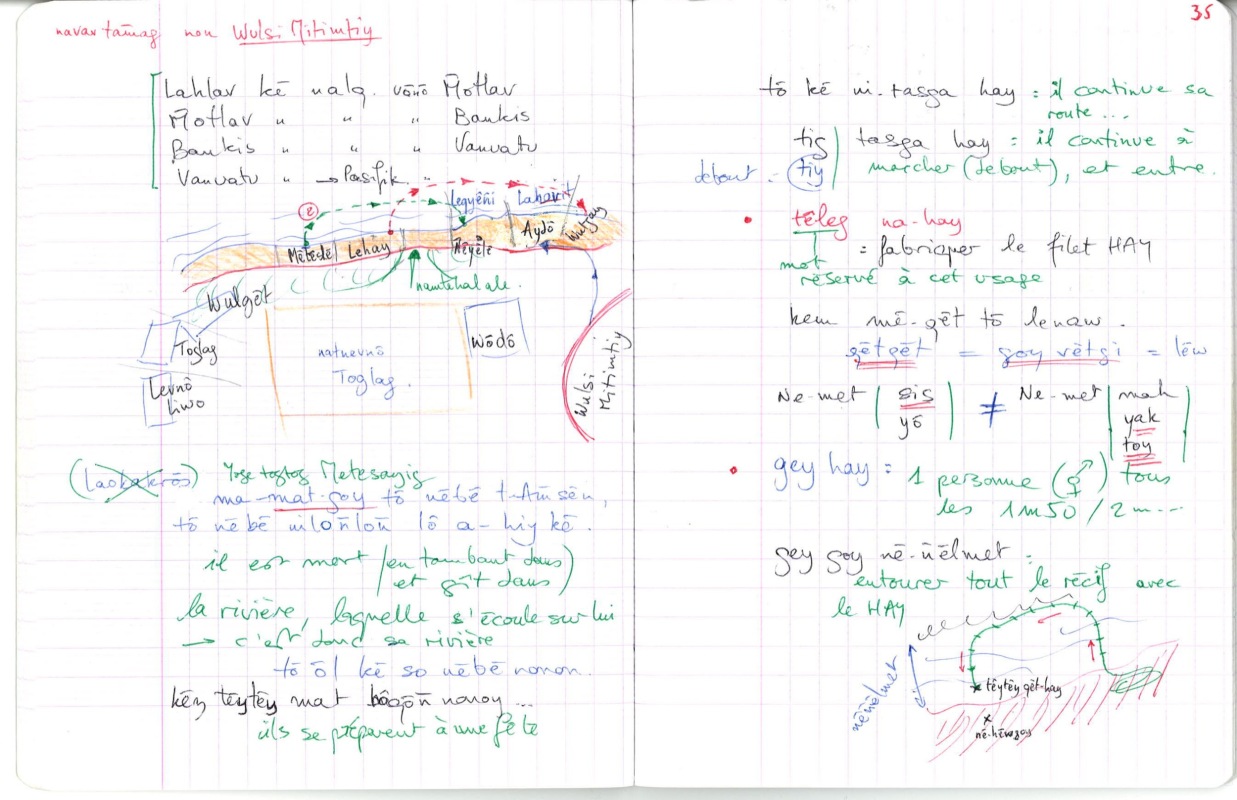 navav tām̄ag non Wulsi M̄itimtiy
Lahlav kē nalq. vōnō M̄otlav
M̄otlav " " " Bankis
Bankis " " " Vanuatu
Vanuatu " → Pasifik. "
Legyēni
Lahavit
Aydō
Mētēdel
Lehāy
Rēyēlē
namtēhal ale.
Wulgēt
Toglag
natnevnō
Toglag.
Wōdō
Wulsi
M̄itimtiy
Levnō
hiwo
(Laokakērōs) Yoge togtog Metesayis
ma-mat goy tō nēbē t-Am̄sēn,
tō nēbē nilōn̄lōn̄ lō a-hiy kē.
il est mort (en tombant dans)
et gît dans
la rivière, laquelle s'écoule sur lui
→ c'est donc sa rivière
tō ōl kē so nēbē nonon.
kēy tēytēy mat bōgōn̄ nonoy ...
ils se préparent à une fête
35
tō kē ni-tasga hay : il continue sa
route ...
tig tasga hay = il continue à
debout = tiy marcher (debout), et entre.
• tēleg na-hay
mot = fabriquer le filet HAY
réservé à cet usage
kem mē-qēt tō lenaw.
gētgēt = goy vētgi = lēw
Ne-met sis ≠ Ne-met mah
yō yak
toy
• gey hay : 1 personne (⚥) tous
les 1m50 / 2m ...
gey goy nē-n̄ēlmet :
entourer tout le récif avec
le HAY
nēn̄ēlmet
tēytēy gēt-hay
nē-hēwgoy